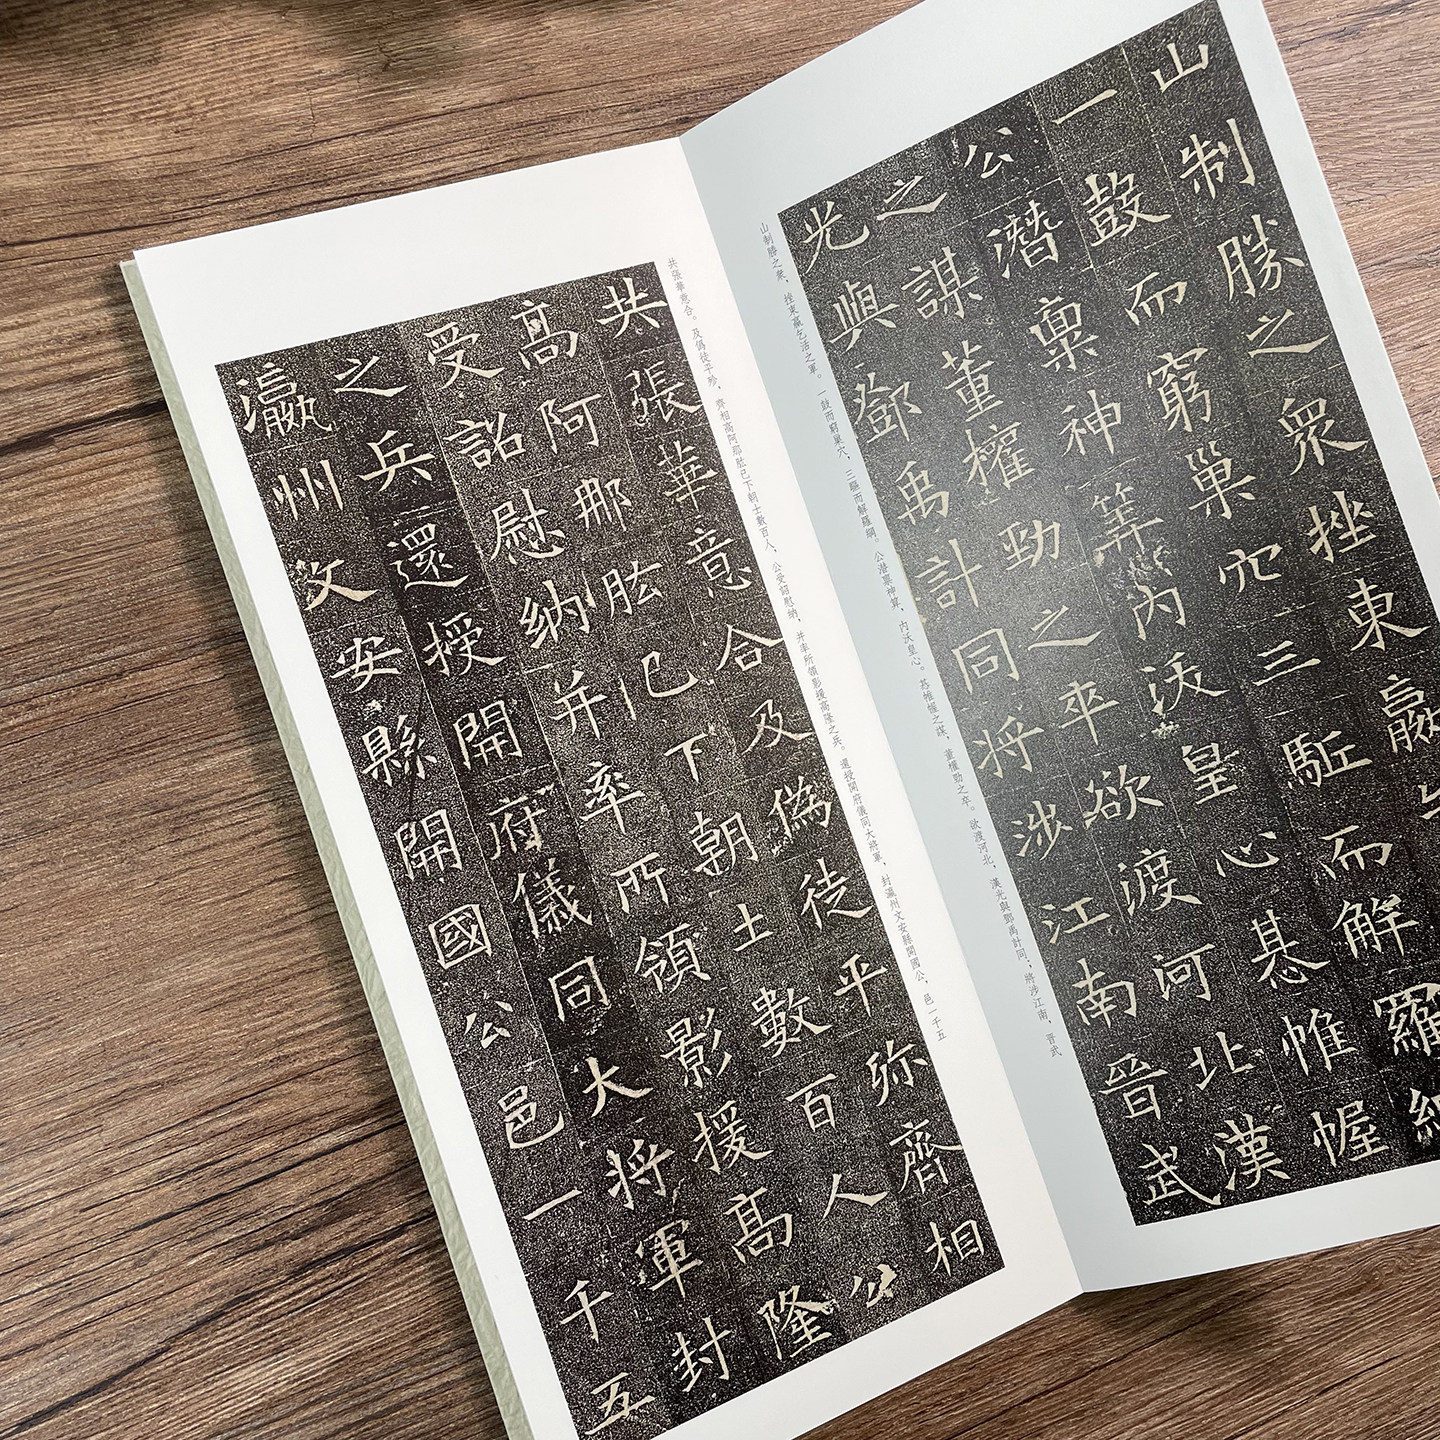 山制勝之衆挫東羸乞
一鼓而窮巢穴三駈而解羅網
公潛稟神筭内沃皇心惎帷幄
之謀董權勁之卒欲渡河北漢
光與鄧禹計同将涉江南晉武
山制勝之衆，挫東羸乞活之軍。一鼓而窮巢穴，三驅而解羅網。公潛稟神算，内沃皇心。惎帷幄之謀，董權勁之卒。欲渡河北，漢光與鄧禹計同；將涉江南，晉武
共張華意合及偽徒平弥齊相
高阿那肱已下朝士數百人公
受詔慰納并率所領影援高隆
之兵還授開府儀同大将軍封
瀛州文安縣開國公邑一千五
共張華意合。及偽徒平殄，齊相高阿那肱已下朝士數百人，公受詔慰納，并率所領影援高隆之兵。還授開府儀同大將軍，封瀛州文安縣開國公，邑一千五